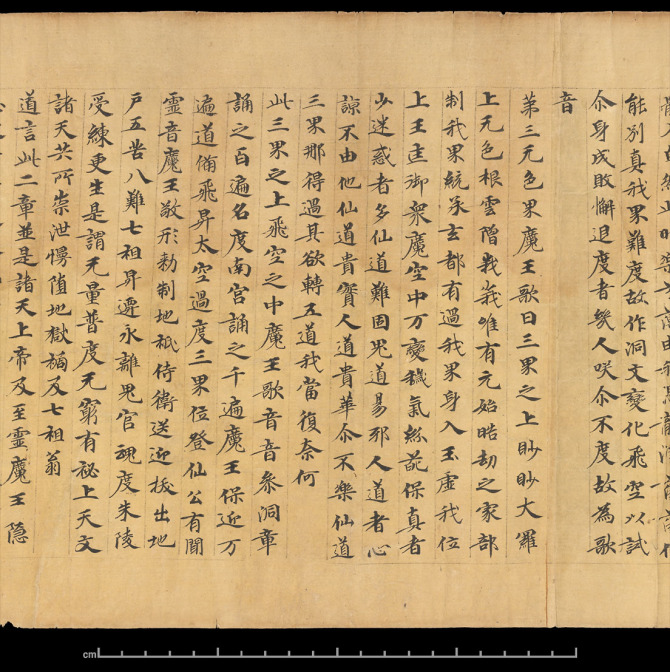 能別真我界難度故作洞文變化飛空以試
尒身成敗懈退度者幾人咲尒不度故為歌
音
第三无色界魔王歌曰三界之上眇眇大羅
上无色根雲層峩峩唯有元始晧劫之家部
制我界統承玄都有過我界身入玉虛我位
上王匡御衆魔空中万變穢氣紛葩保真者
少迷惑者多仙道難固鬼道易邪人道者心
諒不由他仙道貴實人道貴華尒不樂仙道
三界那得過其欲轉五道我當復奈何
此三界之上飛空之中魔王歌音音參洞章
誦之百遍名度南宮誦之千遍魔王保迎万
遍道備飛昇太空過度三界位登仙公有聞
靈音魔王敬形勑制地祇侍衛送迎拔出地
戶五苦八難七祖昇遷永離鬼官魂度朱陵
受練更生是謂无量普度无窮有祕上天文
諸天共所崇泄慢墮地獄禍及七祖翁
道言此二章並是諸天上帝及至靈魔王隱
cm